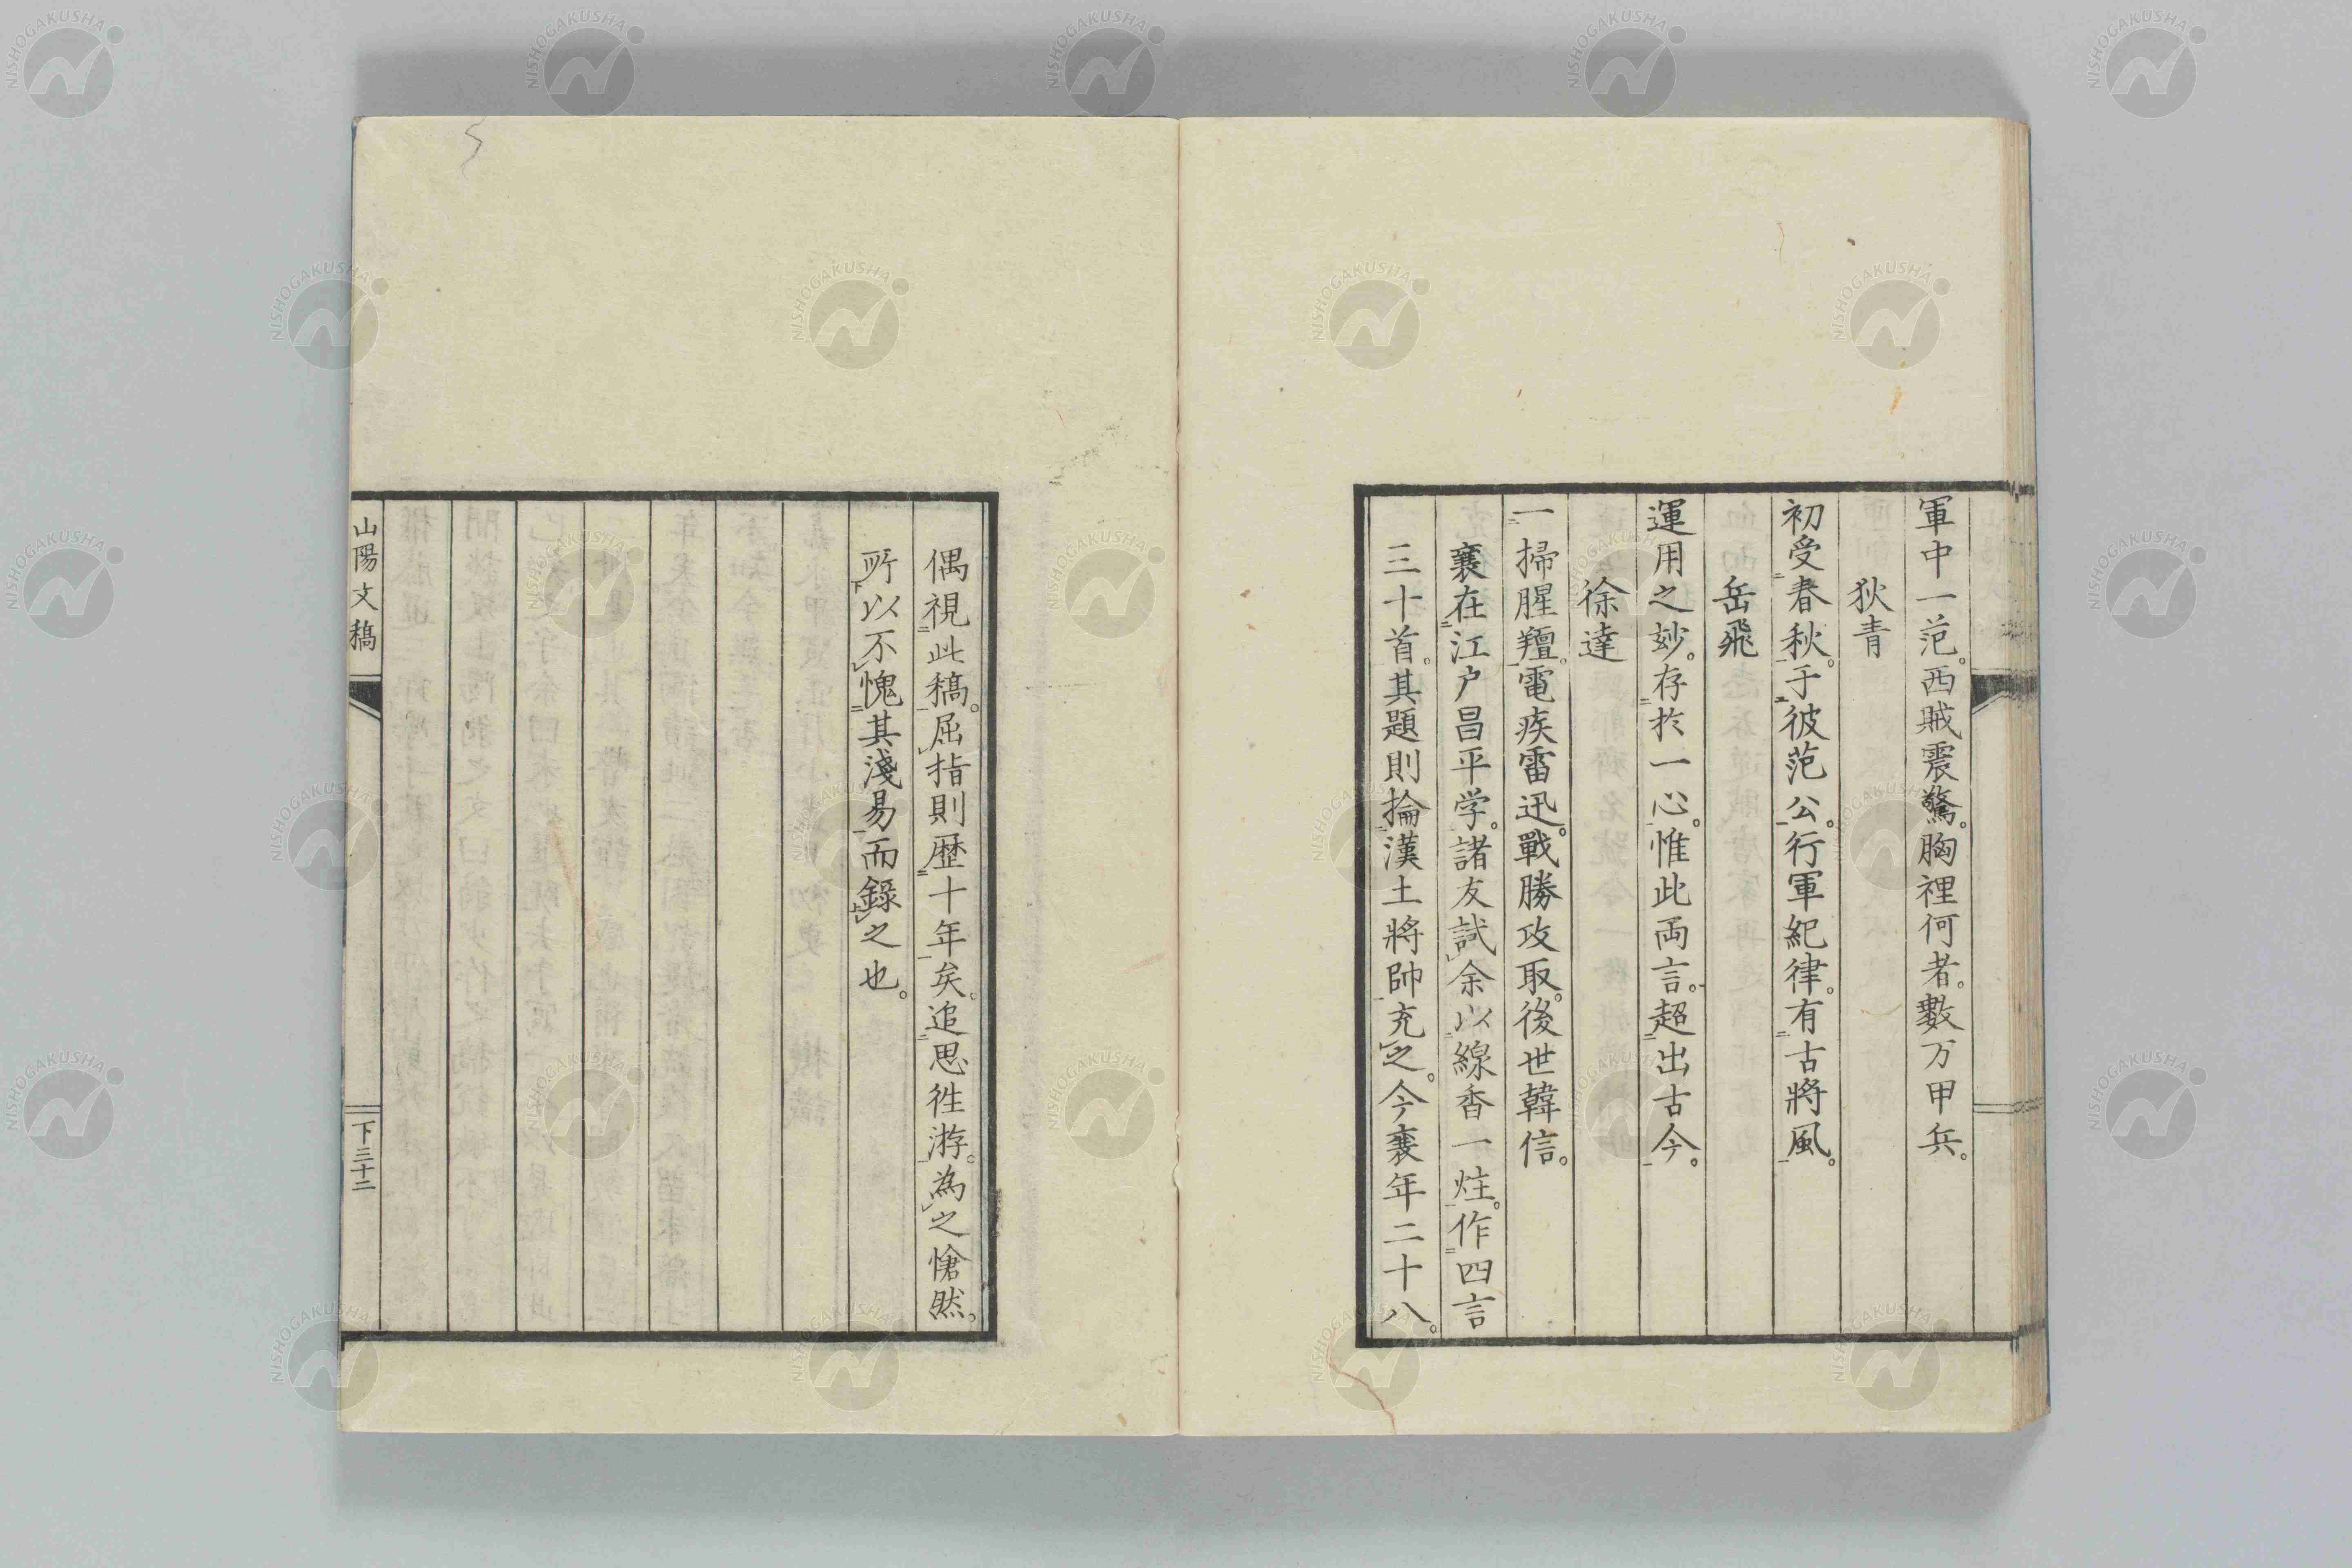 軍中一范。西賊震驚。胸裡何者。數万甲兵。
狄青
初受春秋。于彼范公。行軍紀律。有古將風。
岳飛
運用之妙。存於一心。惟此両言。超出古今。
徐達
一掃腥羶。電疾雷迅。戰勝攻取。後世韓信。
襄在江戸昌平学。諸友試余以線香一炷。作四言
三十首。其題則掄漢土將帥充之。今襄年二十八。
偶視此稿。屈指則歴十年矣。追思徃游。為之愴然。
所以不愧其淺易而錄之也。
山陽文稿
下三十二
NISHOGAKUSHA